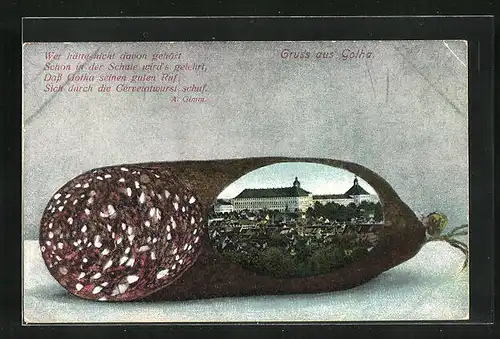 Wer hätte nicht davon gehört
Schon in der Schule wird's gelehrt,
Daß Gotha seinen guten Ruf,
Sich durch die Cervelatwurst schuf.
A. Gimm.
Gruss aus Gotha.